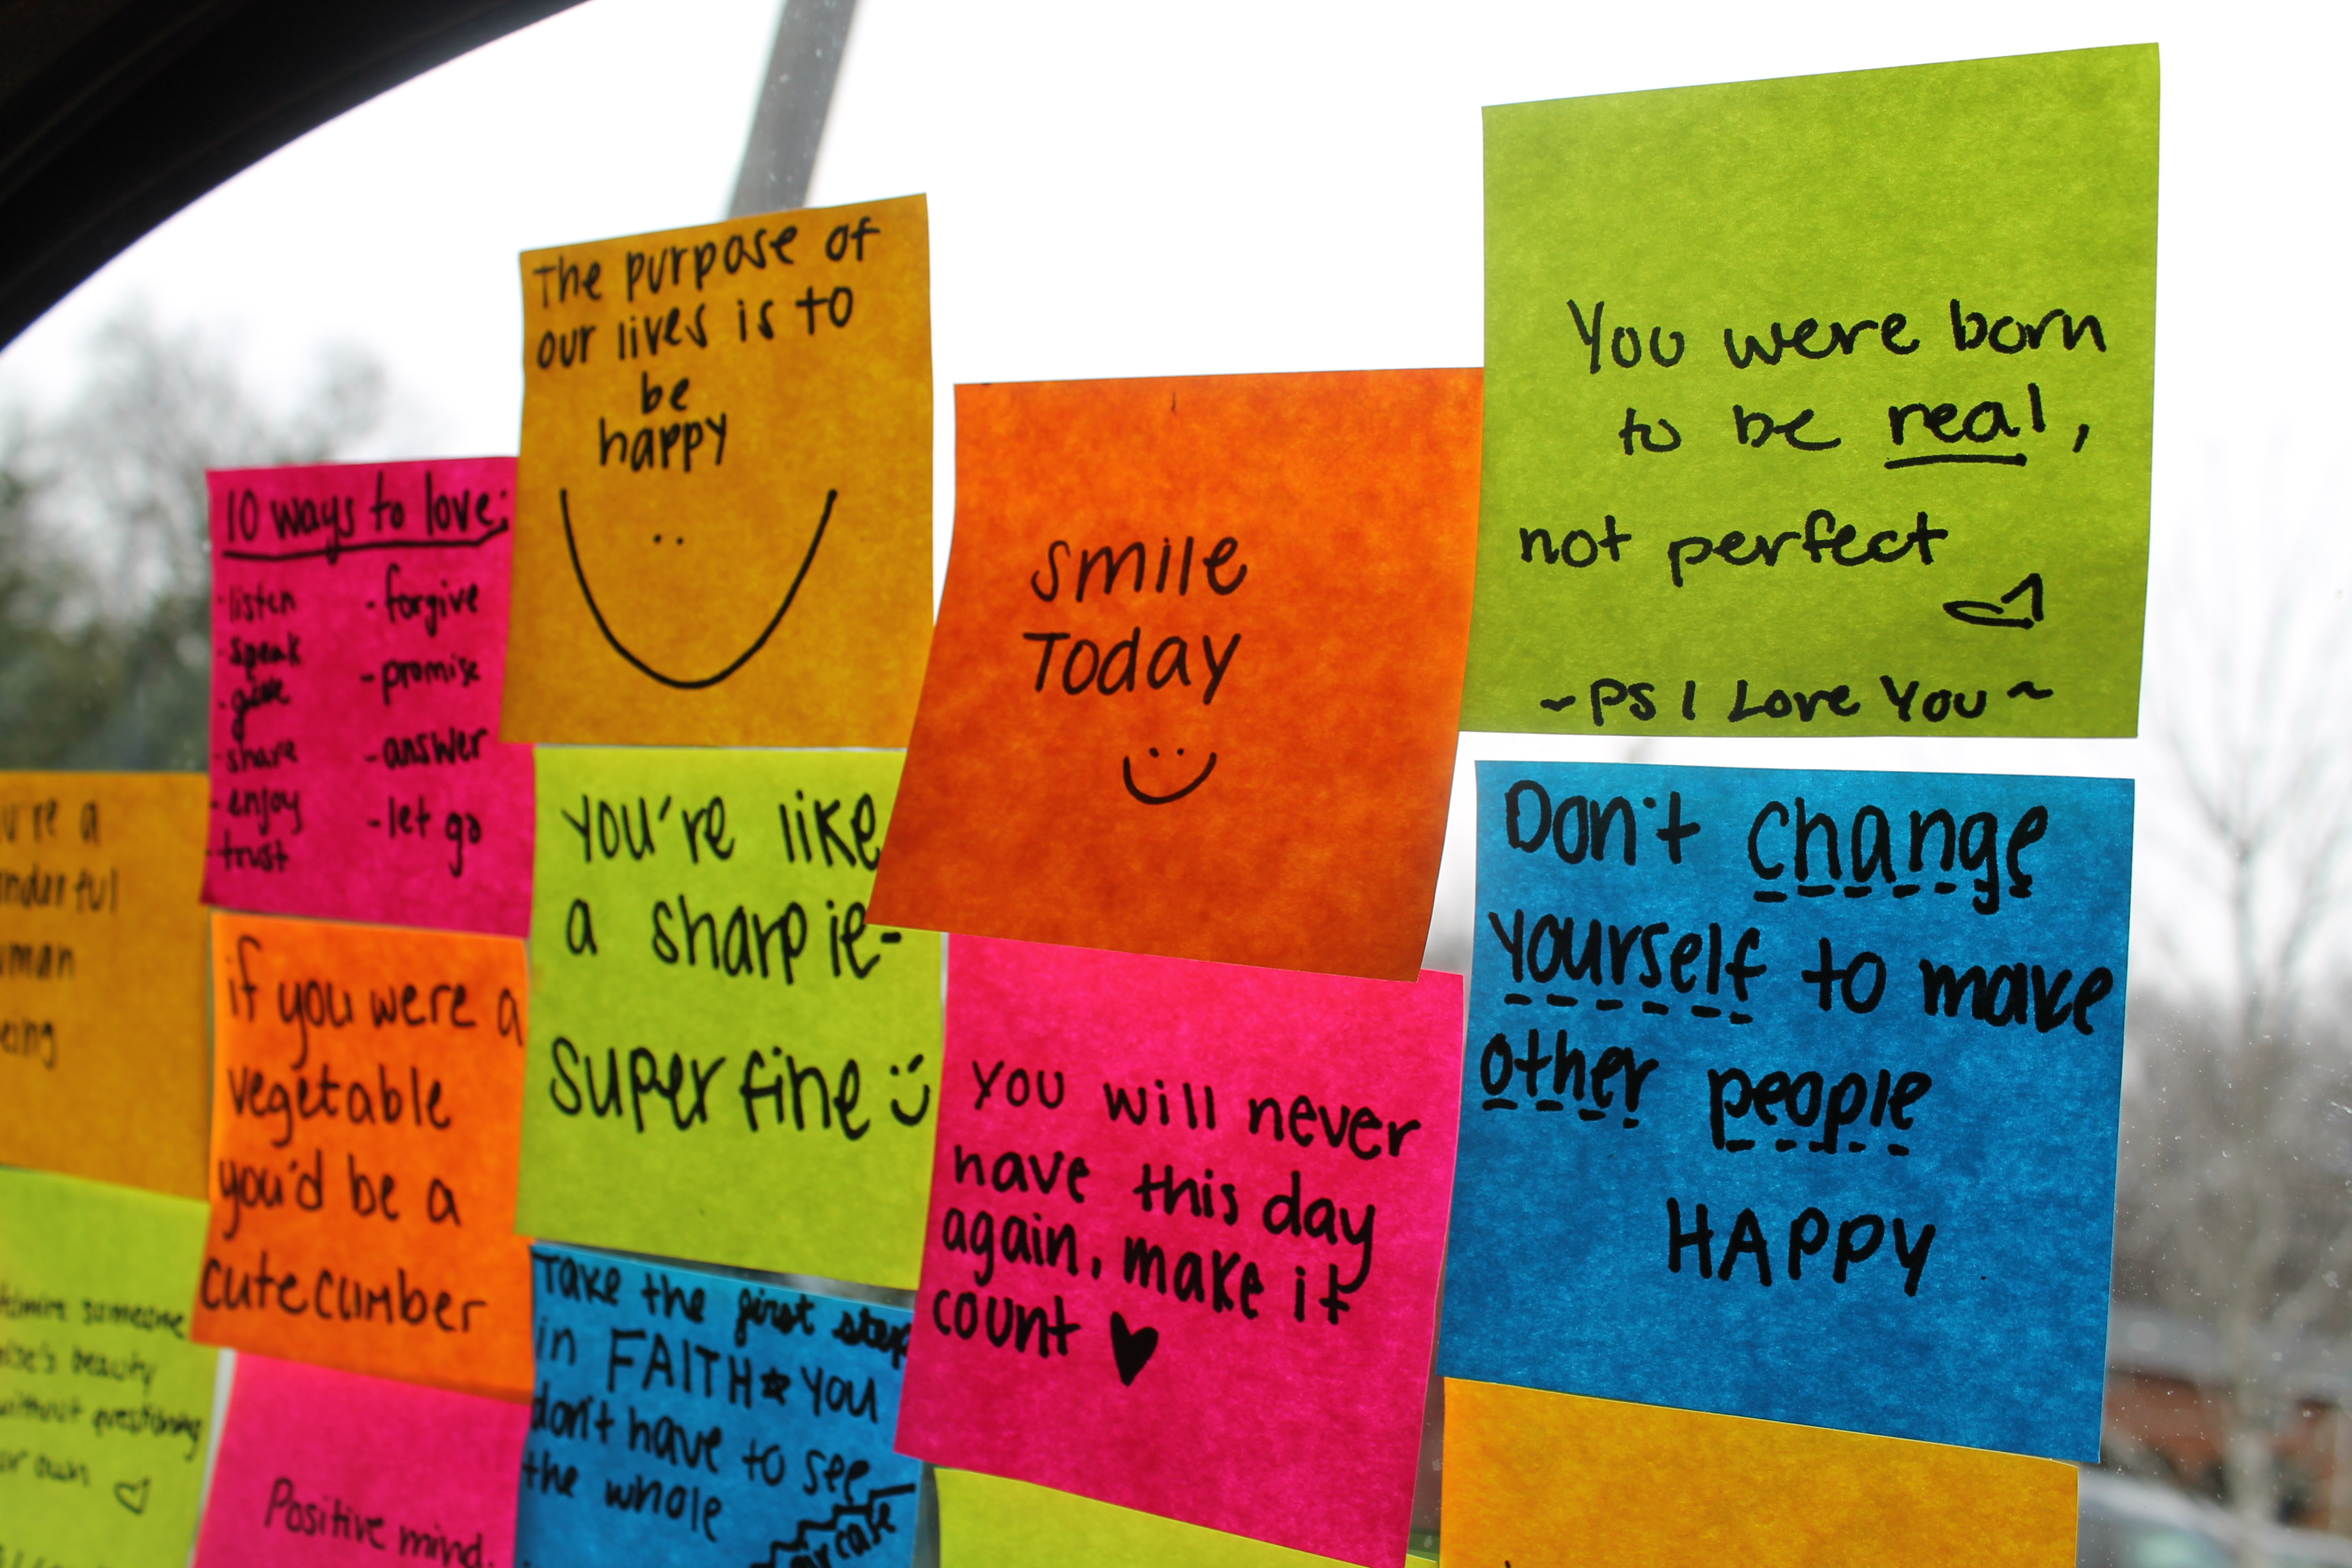 The purpose of
our lives is to
be
happy
10 ways to love:
-listen
-speak
-give
-share
-enjoy
-trust
-forgive
-promise
-answer
-let go
smile
Today
You were born
to be real,
not perfect
~PS I Love You~
You're like
a sharpie-
super fine
Don't change
yourself to make
other people
HAPPY
if you were a
vegetable
you'd be a
cutecumber
You will never
have this day
again, make it
count
Take the first step
in FAITH YOU
don't have to see
the whole
a
being
someone
else's beauty
without questioning
own
Positive mind.